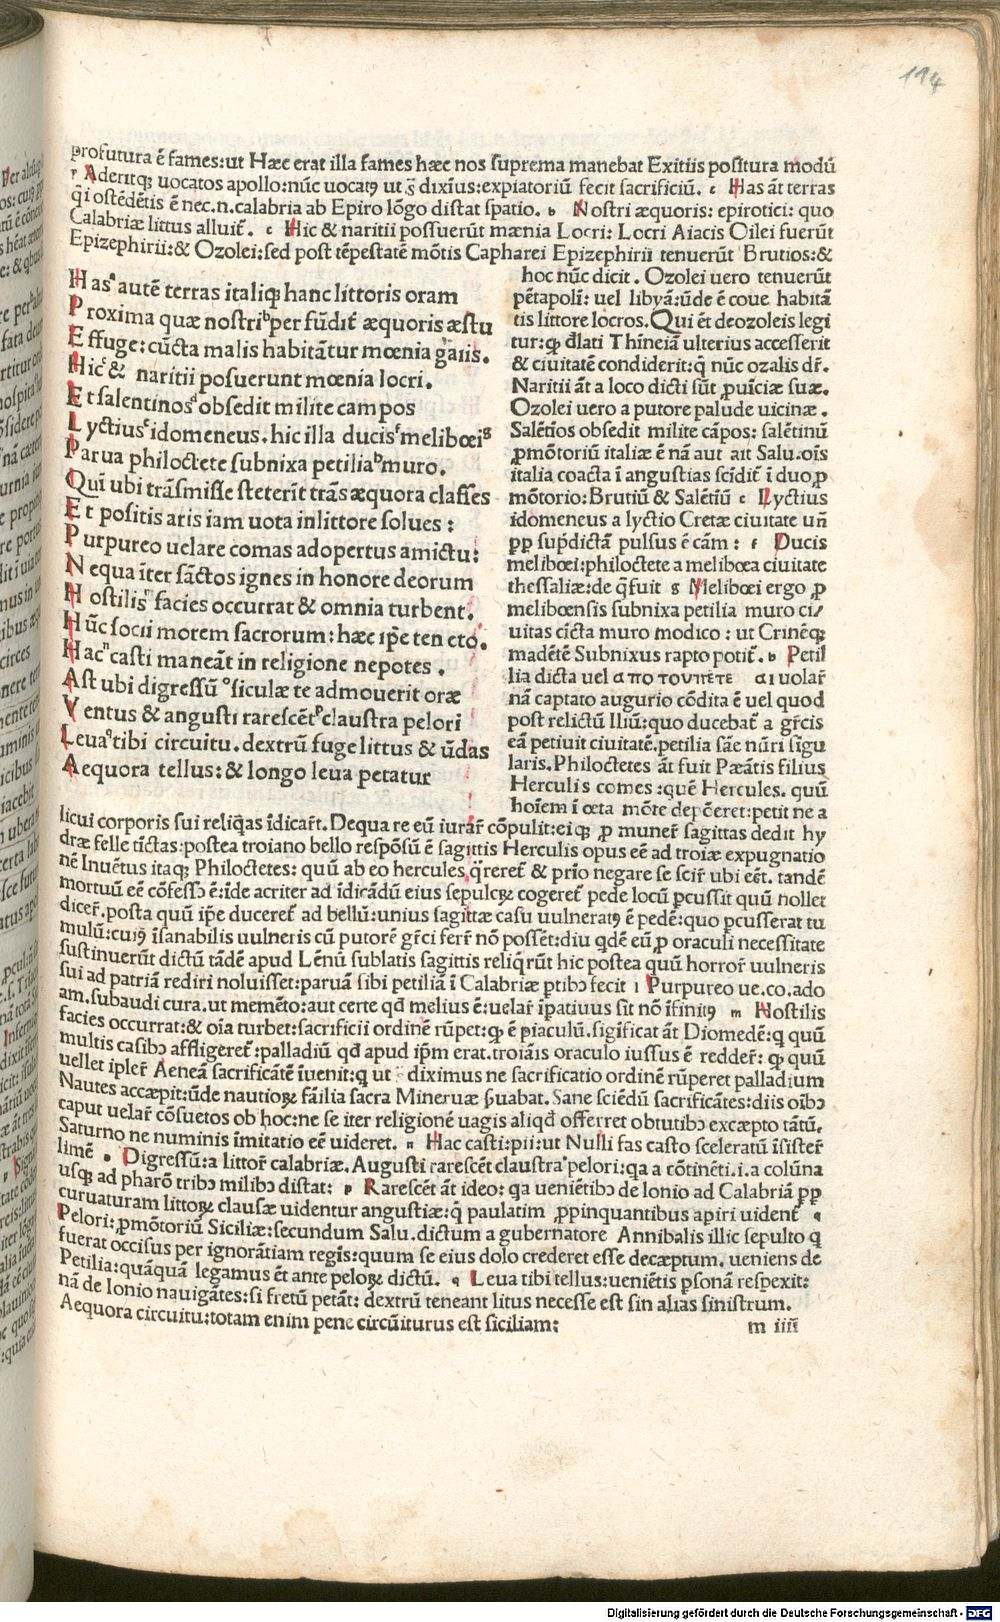 114
profutura ē fames:ut Hæc erat illa fames hæc nos suprema manebat Exitiis positura modū
r Aderitqꝫ uocatos apollo:nūc uocatꝰ ut s̄ dixīus:expiatoriū fecit sacrificiū. c Has āt terras
q̄i ostēdētis ē nec.n.calabria ab Epiro lōgo distat spatio. b Nostri æquoris: epirotici: quo
Calabriæ littus alluit̄. c Hic & naritii possuerūt mænia Locri: Locri Aiacis Oilei fuerūt
Epizephirii:& Ozolei:sed post tēpestatē mōtis Capharei Epizephirii tenuerūt Brutios:&
Hasᵃ autē terras italiqꝫ hanc littoris oram
Proxima quæ nostriᵇ per fūdit̄ æquoris æstu
Effuge:cūcta malis habitātur mœnia gaiis.
Hicᶜ & naritii posuerunt mœnia locri.
Et salentinosᵈ obsedit milite campos
Lyctiusᵉ idomeneus.hic illa ducisᶠ melibœiᵍ
Parua philoctete subnixa petiliaᵇ muro.
Qui ubi trāsmisse steterīt trās æquora classes
Et positis aris iam uota inlittore solues :
Purpureo uelare comas adopertus amictu:
Nequa īter sāctos ignes in honore deorum
Hostilisᵐ facies occurrat & omnia turbent.
Hūc socii morem sacrorum:hæc ip̄e ten eto.
Hacⁿ casti maneāt in religione nepotes .
Ast ubi digressū ᵒ siculæ te admouerit oræ
Ventus & angusti rarescēt ᵖ claustra pelori
Leuaᑫ tibi circuitu.dextrū fuge littus & ūdas
Aequora tellus:& longo leua petatur
hoc nūc dicit . Ozolei uero tenuerūt
pētapolī: uel libyā:ūde ē coue habitā
tis littore locros.Qui ēt deozoleis legi
tur:ꝙ d̄lati Thineiā ulterius accesserīt
& ciuitatē condiderīt:q̄ nūc ozalis dr̄.
Naritii āt a loco dicti sūt ꝓuīciæ suæ.
Ozolei uero a putore palude uicinæ .
Salētios obsedit milite cāpos: salētinū
ꝓmōtoriū italiæ ē nā aut ait Salu.oīs
italia coacta ī angustias scīdit̄ ī duo ꝓ
mōtorio:Brutiū & Salētiū e Lyctius
idomeneus a lyctio Cretæ ciuitate uñ
ꝓp sup̄dictā pulsus ē cām : f Ducis
melibœi:philoctete a melibœa ciuitate
thessaliæ:de q̄ fuit g Melibœi ergo ꝓ
melibœnsis subnixa petilia muro ci/
uitas cīcta muro modico : ut Crinēqꝫ
madētē Subnixus rapto potit̄. h Petil
lia dicta uel απο τουπετε αι uolar̄
nā captato augurio cōdita ē uel quod
post relictū Iliū:quo ducebat̄ a gr̄cis
eā petiuit ciuitatē.petilia sāe nūri sīgu
laris.Philoctetes āt fuit Pæātis filius
Herculis comes :quē Hercules. quū
hoīem ī œta mōte depōeret:petit ne a
licui corporis sui reliq̄as īdicar̄t.Dequa re eū iurar̄ cōpulit:eiqꝫ ꝓ muner̄ sagittas dedit hy
dræ felle tīctas:postea troiano bello respōsū ē sagittis Herculis opus eē ad troiæ expugnatio
nē Inuētus itaqꝫ Philoctetes: quū ab eo hercules q̄reret̄ & prīo negare se scir̄ ubi eēt. tandē
mortuū eē cōfessɔ ē:īde acriter ad īdicādū eius sepulcꝝ cogeret̄ pede locū ꝑcussit quū nollet
dicer̄.posta quū ip̄e duceret̄ ad bellū:unius sagittæ casu uulneratꝰ ē pedē:quo ꝑcusserat tu
mulū:cuiꝰ īsanabilis uulneris cū putorē gr̄ci ferr̄ nō possēt:diu qdē eū ꝓ oraculi necessitate
sustinuerūt dictū tādē apud Lēnū sublatis sagittis reliq̄rūt hic postea quū horror̄ uulneris
sui ad patriā rediri noluisset:paruā sibi petiliā ī Calabriæ ꝑtibɔ fecit i Purpureo ue.co.ado
am.subaudi cura.ut memēto:aut certe qd̄ melius ē:uelar̄ īpatiuus sit nō īfinitꝰ m Hostilis
facies occurrat:& oīa turbet:sacrificii ordinē rūpet:ꝙ ē piaculū.sigīficat āt Diomedē:q̄ quū
multis casibɔ affligeret̄:palladiū qd̄ apud ip̄m erat.troiāis oraculo iussus ē redder̄: ꝙ quū
uellet ipler̄ Aeneā sacrificātē īuenit:q̄ ut s̄ diximus ne sacrificatio ordinē rūperet palladium
Nautes accæpit:ūde nautioꝝ fāilia sacra Mineruæ ẜuabat. Sane sciēdū sacrificātes:diis oībɔ
caput uelar̄ cōsuetos ob hoc:ne se iter religionē uagis aliqd̄ offerret obtutibɔ excæpto tātū.
Saturno ne numinis īmitatio eē uideret. n Hac casti:pii:ut Nulli fas casto sceleratū īsister̄
limē o Digressū:a littor̄ calabriæ.Augusti rarescēt claustra pelori:qa a cōtinēti.i.a colūna
usqꝫ ad pharō tribɔ milibɔ distat: p Rarescēt āt ideo: qa ueniētibɔ de Ionio ad Calabriā ꝓp
curuaturam littoꝝ clausæ uidentur angustiæ:q̄ paulatim ꝓpinquantibus apiri uident̄ q
Pelori:ꝓmōtoriū Siciliæ:secundum Salu.dictum a gubernatore Annibalis illic sepulto q
fuerat occisus per ignorātiam regīs:quum se eius dolo crederet esse decæptum. ueniens de
Petilia:quāquā legamus ēt ante peloꝝ dictū. q Leua tibi tellus:ueniētis ꝑsonā respexit:
nā de Ionio nauigātes:si fretū petāt: dextrū teneant litus necesse est sin alias sinistrum.
Aequora circuitu:totam enim pene circūiturus est siciliam:
m iiii
Digitalisierung gefördert durch die Deutsche Forschungsgemeinschaft - DFG